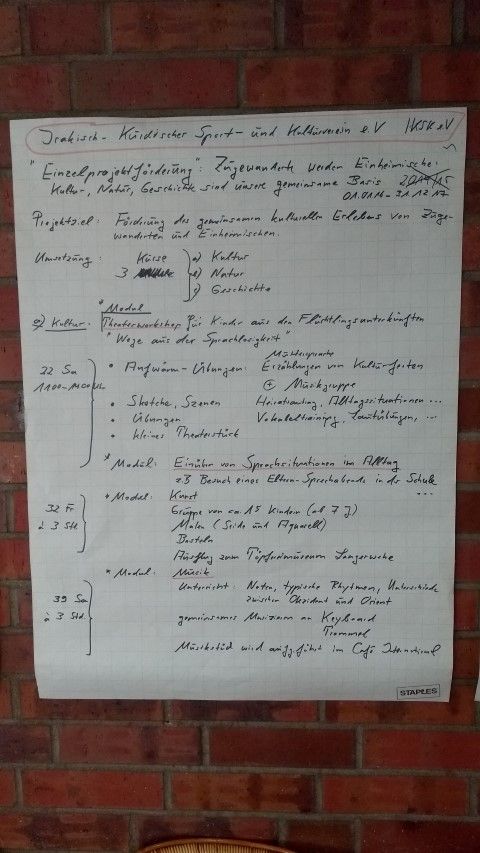 Irakisch-Kurdischer Sport- und Kulturverein e.V IKSK eV
"Einzelprojektförderung": Zugewanderte werden Einheimische:
Kultur-, Natur, Geschichte sind unsere gemeinsame Basis
01.01.16 - 31.12.17
Projektziel: Förderung des gemeinsamen kulturellen Erlebens von Zuge-
wanderten und Einheimischen.
Umsetzung: Kurse a) Kultur
3 b) Natur
c) Geschichte
* Modul
a) Kultur: Theaterworkshop für Kinder aus den Flüchtlingsunterkünften
"Wege aus der Sprachlosigkeit"
Muttersprache
• Aufwärm-Übungen: Erzählungen von Kulturfesten
+ Musikgruppe
• Sketche, Szenen Alltagssituationen ...
• Übungen Vokaltraining, Lautübungen, ...
• kleines Theaterstück
* Modul: Einüben von Sprachsituationen im Alltag
zB Besuch eines Eltern-Sprechabends in der Schule
...
* Modul: Kunst
32 Fr Gruppe von ca. 15 Kindern (ab 7 J)
à 3 Std. Malen (Seide und Aquarell)
Basteln
Ausflug zum Töpfereimuseum Langerwehe
* Modul: Musik
39 Sa Unterricht: Noten, typische Rhythmen, Unterschiede
zwischen Okzident und Orient
à 3 Std. gemeinsames Musizieren an Keyboard
Trommel
Musikstück wird aufgeführt im Café International
STAPLES